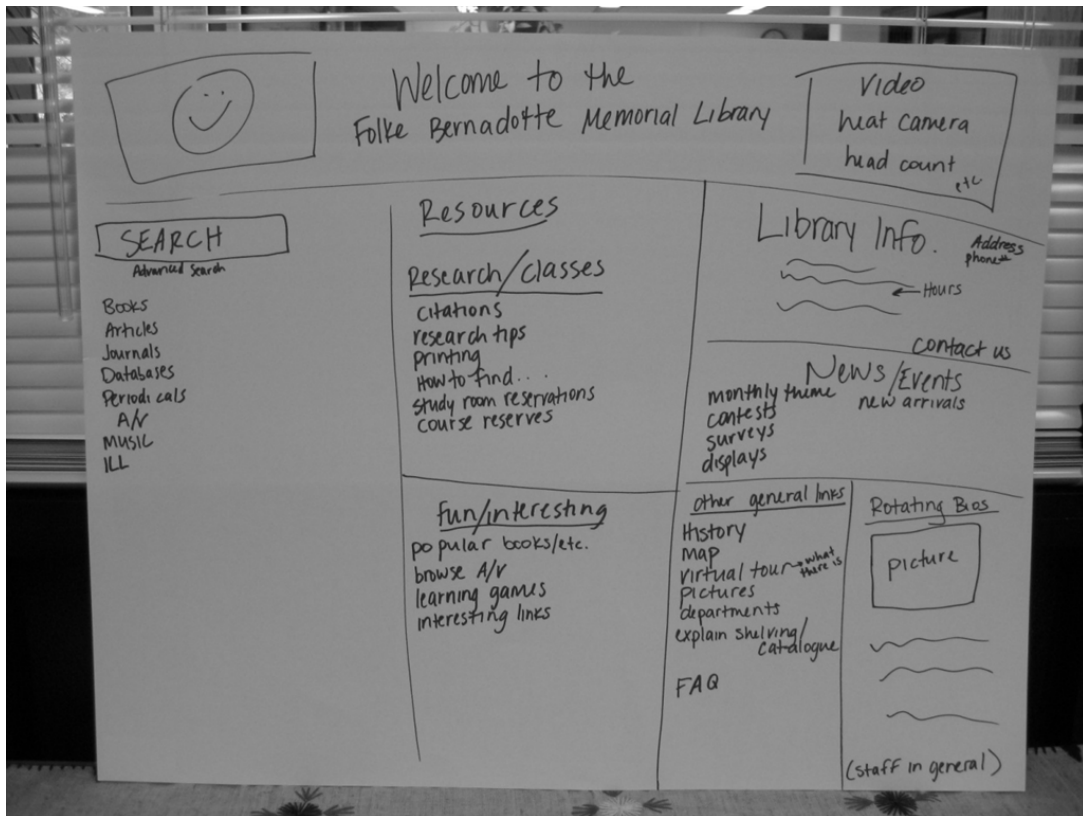 Welcome to the
Folke Bernadotte Memorial Library
Video
heat camera
head count
etc
SEARCH
Advanced Search
Books
Articles
Journals
Databases
Periodicals
A/V
MUSIC
ILL
Resources
Research/Classes
citations
research tips
printing
How to find...
study room reservations
course reserves
Fun/interesting
popular books/etc.
browse A/V
learning games
interesting links
Library Info.
Address
phone#
← Hours
contact us
News/Events
monthly theme
new arrivals
contests
surveys
displays
other general links
History
map
virtual tour → what
there is
pictures
departments
explain shelving/
catalogue
FAQ
Rotating Bios
picture
(staff in general)